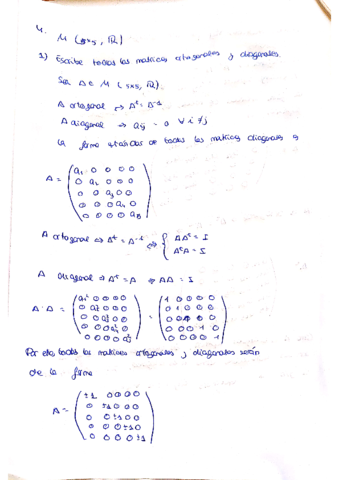 4.
M (5x5, ℝ)
1) Escribe todas las matrices ortogonales y diagonales.
Sea A ∈ M (5x5, ℝ)
A ortogonal ⇒ Aᵗ = A⁻¹
A diagonal ⇒ aij = 0 ∀ i ≠ j
La forma estándar de todas las matrices diagonales es
A = ( a₁ 0 0 0 0
0 a₂ 0 0 0
0 0 a₃ 0 0
0 0 0 a₄ 0
0 0 0 0 a₅ )
A ortogonal ⇒ Aᵗ = A⁻¹ ⇔ { AAᵗ = I
AᵗA = I
A diagonal ⇒ Aᵗ = A ⇒ AA = I
A · A = ( a₁² 0 0 0 0 = ( 1 0 0 0 0
0 a₂² 0 0 0 0 1 0 0 0
0 0 a₃² 0 0 0 0 1 0 0
0 0 0 a₄² 0 0 0 0 1 0
0 0 0 0 a₅² ) 0 0 0 0 1 )
Por ello, todas las matrices ortogonales y diagonales serán
de la forma
A = ( ±1 0 0 0 0
0 ±1 0 0 0
0 0 ±1 0 0
0 0 0 ±1 0
0 0 0 0 ±1 )